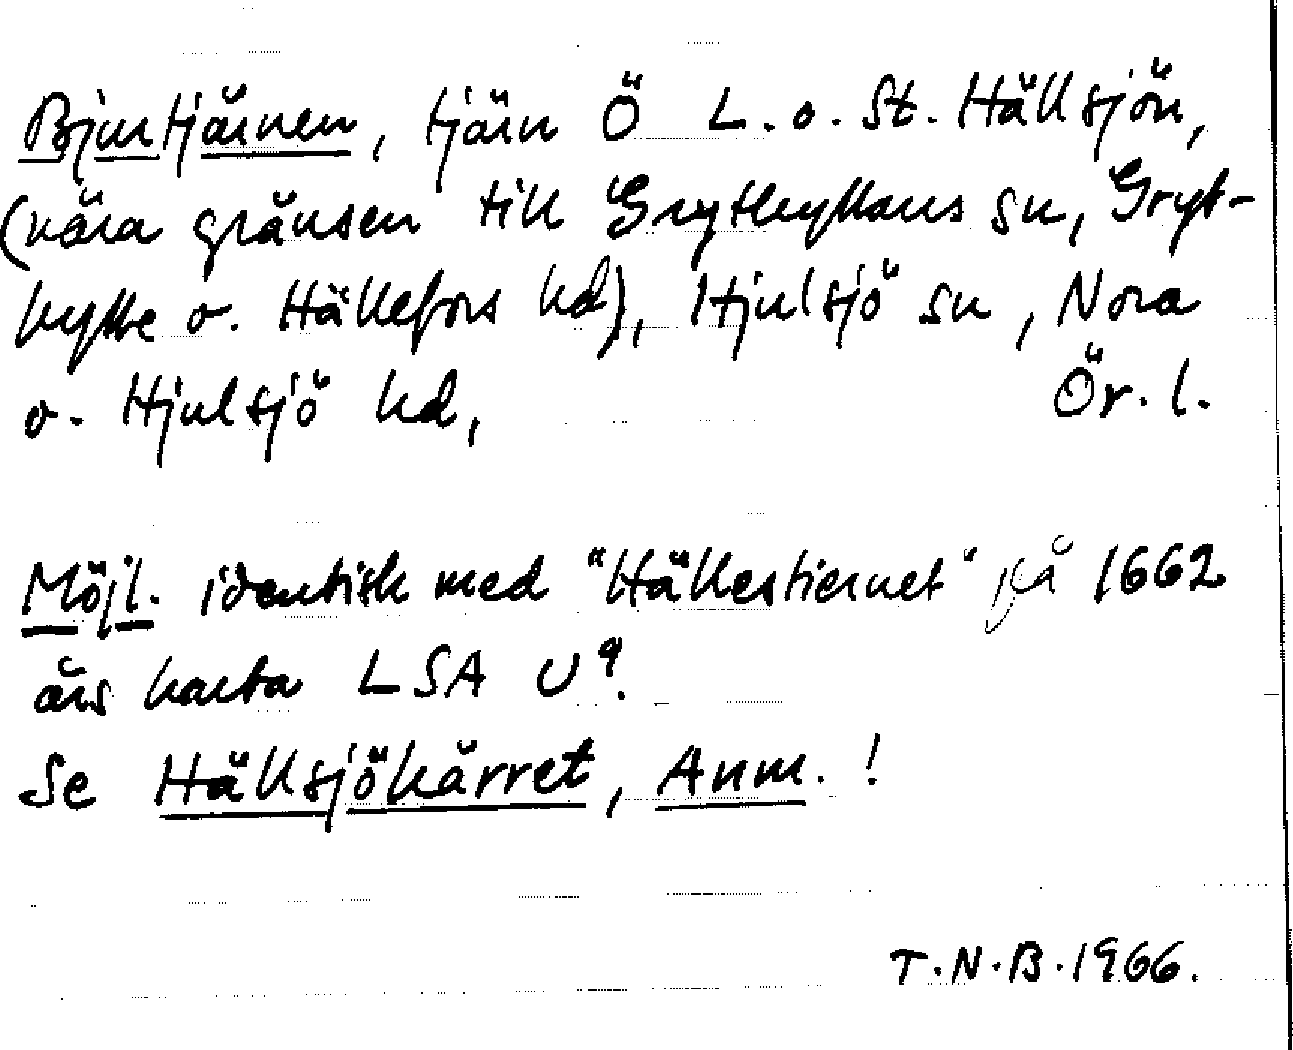 Bjurtjärnen, tjärn Ö L. o. St. Hällsjön,
(nära gränsen till Grythyttans sn, Gryt-
hytte o. Hällefors hd), Hjulsjö sn, Nora
o. Hjulsjö hd, Ör. l.
Möjl. identisk med "Hällestiernet" på 1662
års karta LSA U⁹.
Se Hällsjökärret, Anm. !
T.N.B. 1966.